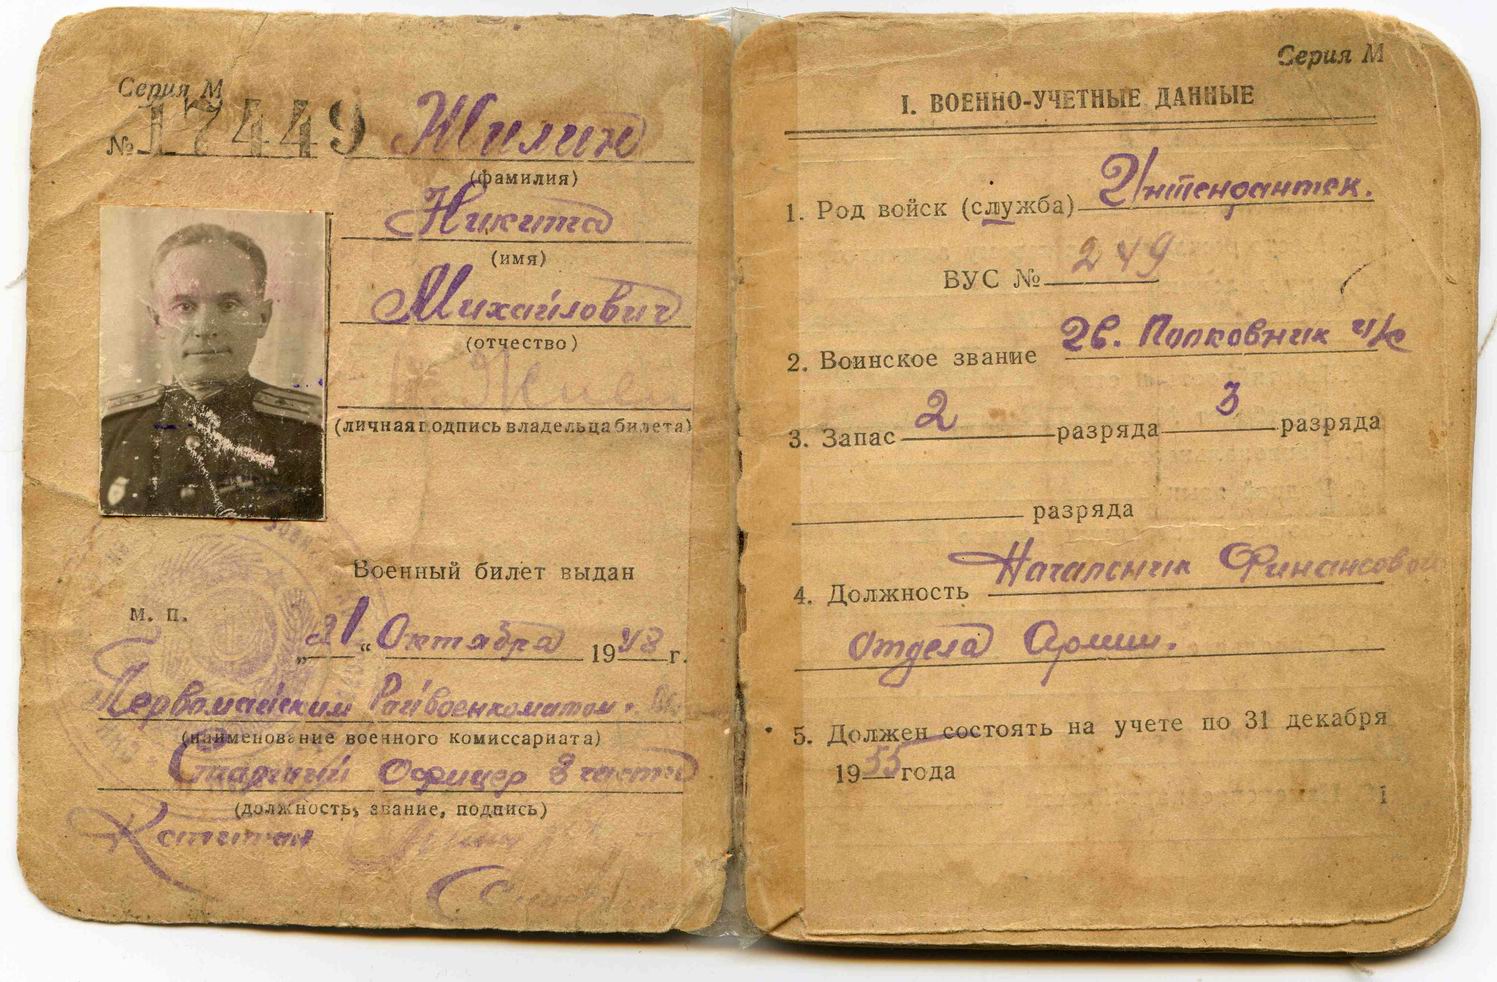 Серия М
№ 17449 Жилин
(фамилия)
Никита
(имя)
Михайлович
(отчество)
(личная подпись владельца билета)
Военный билет выдан
М. П.
„21“ Октября 1948 г.
Первомайским Райвоенкоматом
(наименование военного комиссариата)
Старший Офицер 3 части
(должность, звание, подпись)
Капитан
Серия М
I. ВОЕННО-УЧЕТНЫЕ ДАННЫЕ
1. Род войск (служба) Интендантск.
ВУС № 249
2. Воинское звание Гв. Полковник и/с
3. Запас 2 разряда 3 разряда
разряда
4. Должность Начальник Финансовой
отдела Армии.
5. Должен состоять на учете по 31 декабря
1955 года
1